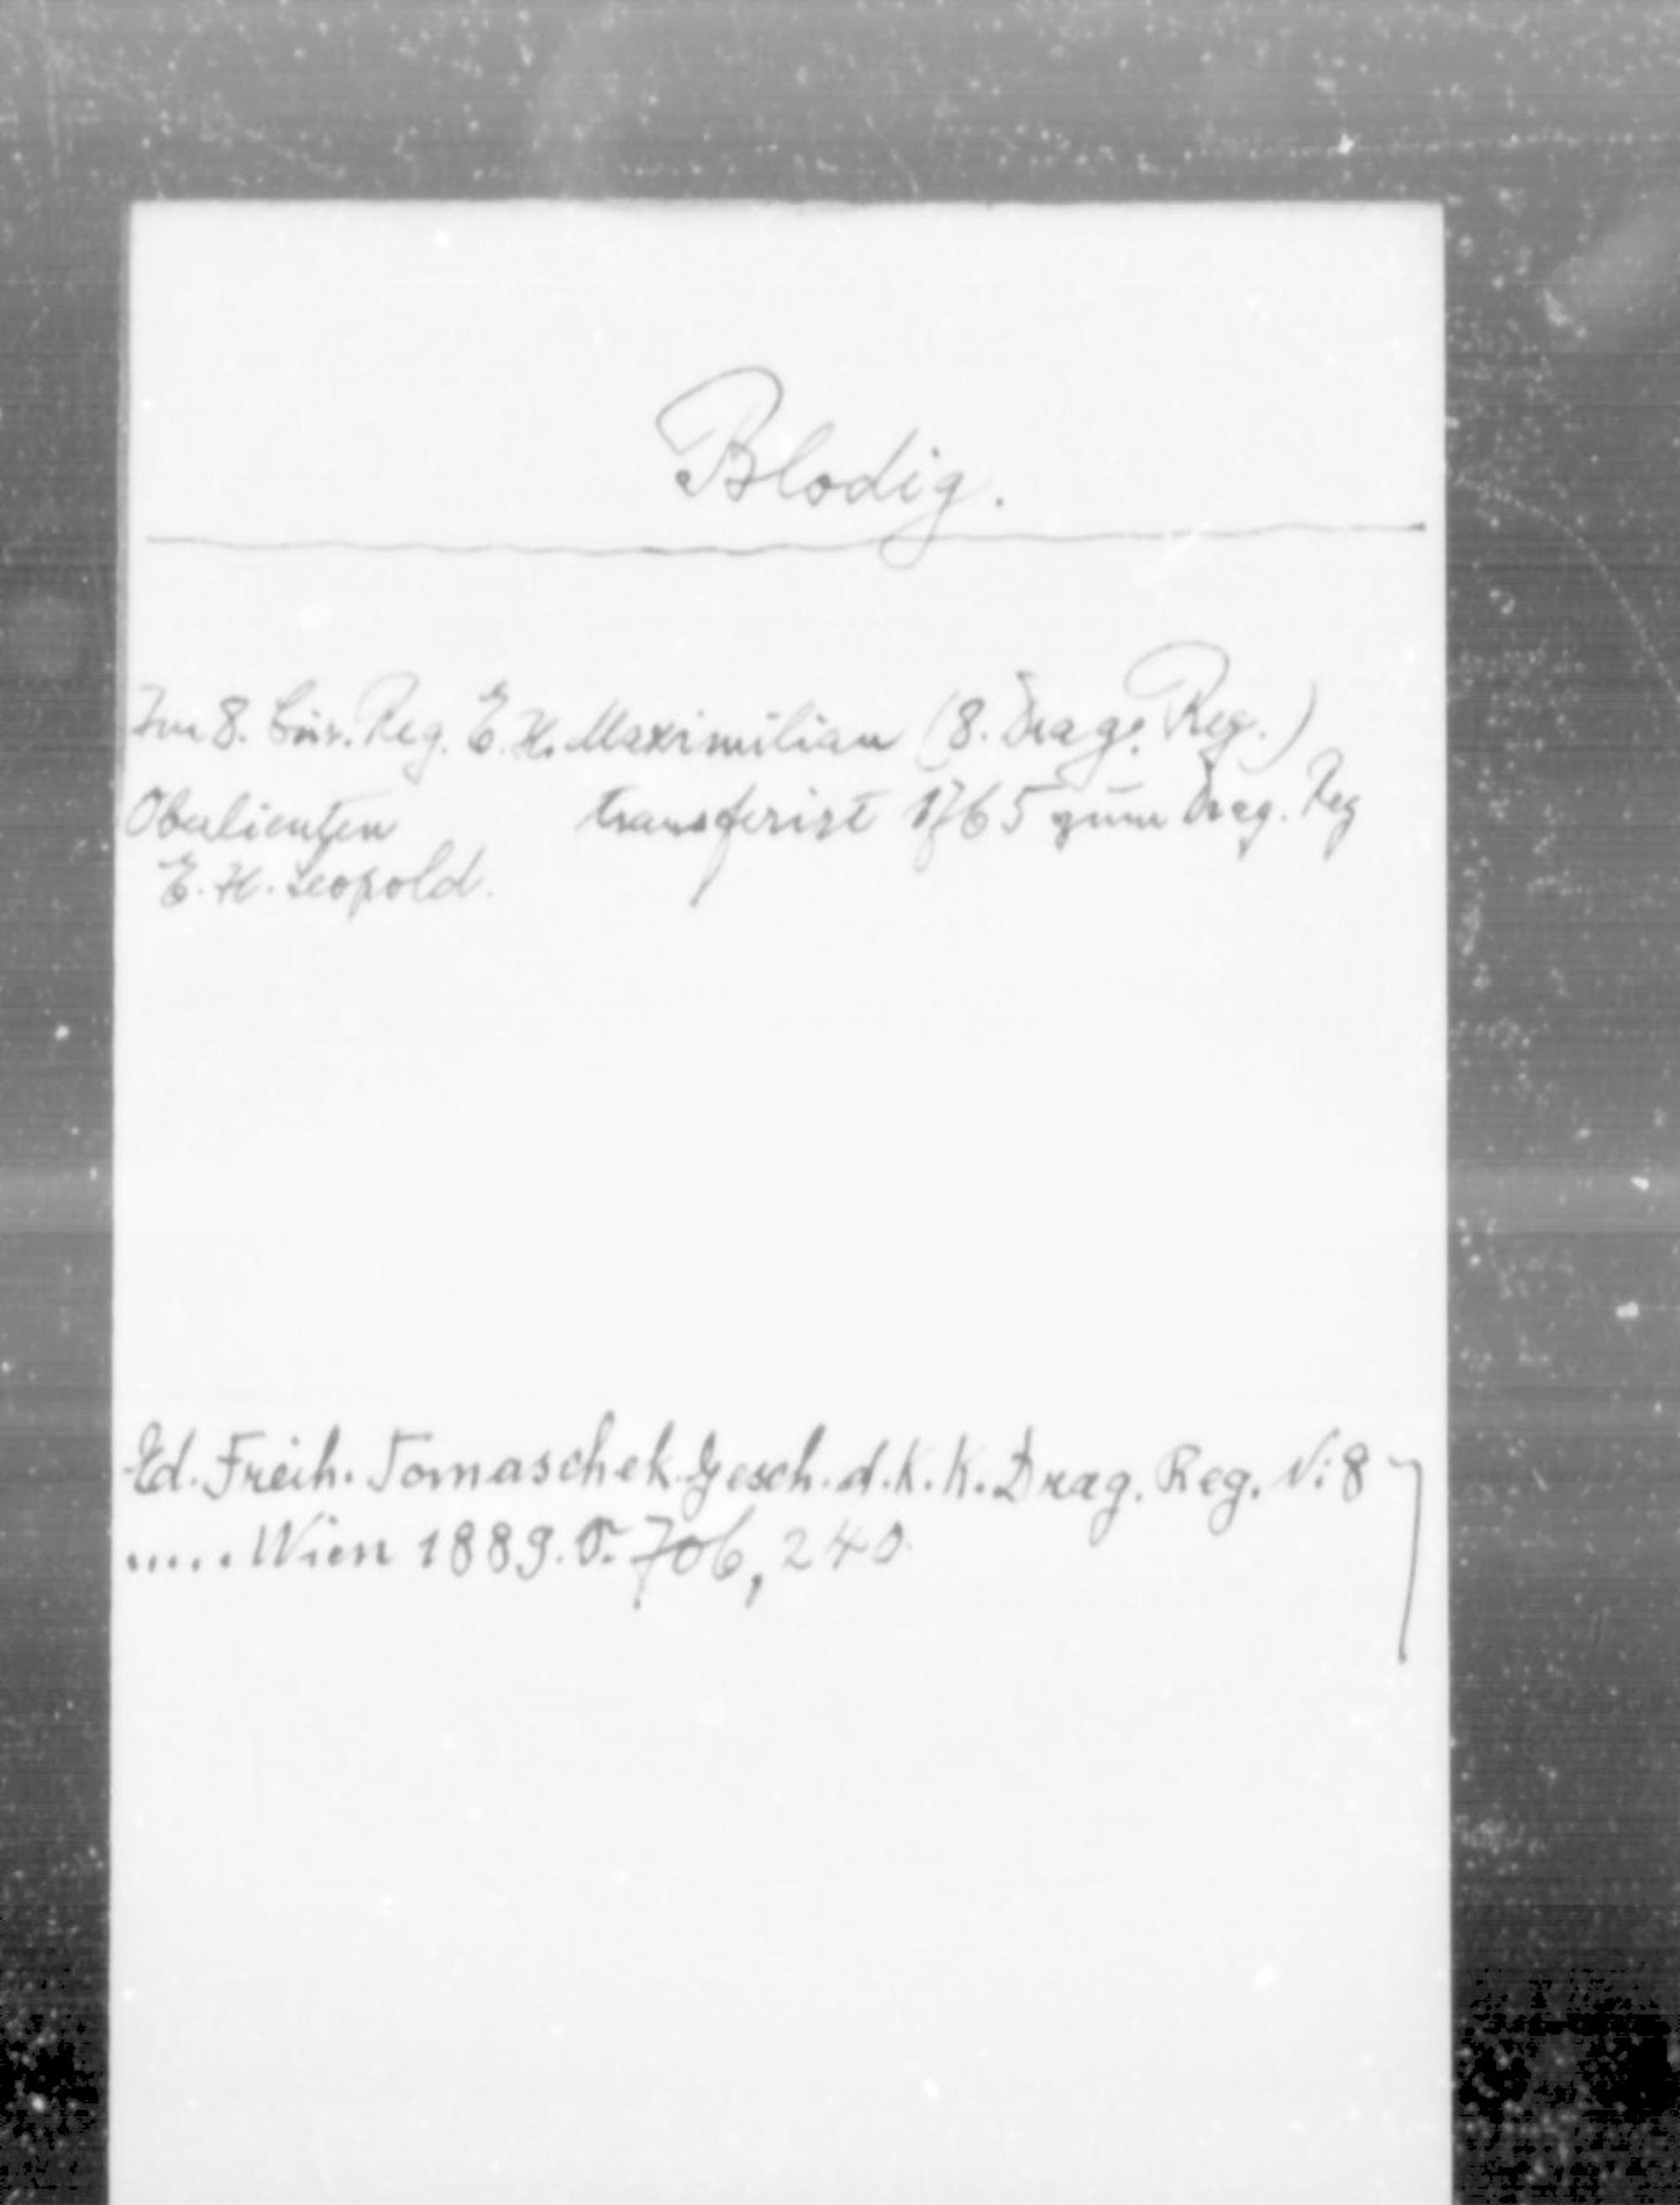 Blodig.
Im 8. Cür. Reg. E. H. Maximilian (8. Drag. Reg.)
Oberlieuten transferirt 1765 zum Drag. Reg
E. H. Leopold.
Ed. Freih. Tomaschek. Gesch. d. k. k. Drag. Reg. N: 8
..... Wien 1889. S. 706, 240.